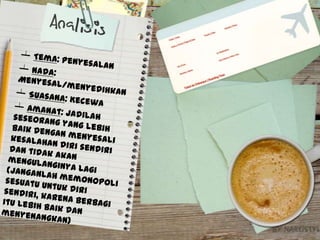 Analisis
Tema: Penyesalan
Nada:
Menyesal/Menyedihkan
Suasana: Kecewa
Amanat: Jadilah
seseorang yang lebih
baik dengan menyesali
kesalahan diri sendiri
dan tidak akan
mengulanginya lagi
(janganlah memonopoli
sesuatu untuk diri
sendiri, karena berbagi
itu lebih baik dan
menyenangkan)